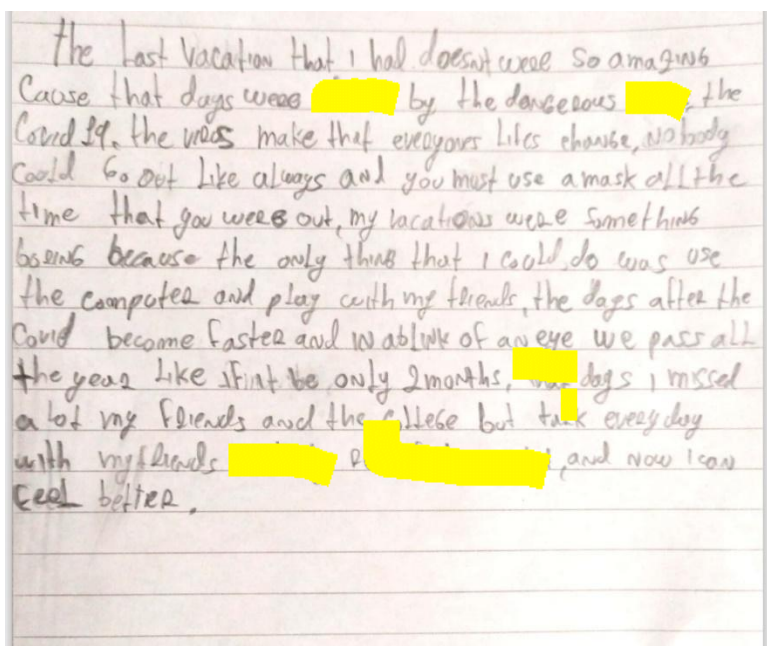 the Last Vacation that I had doesnt were so amazing
Cause that days were by the dangerous , the
Covid 19. the virus make that everyones lifes change, nobody
Coold Go out Like always and you must use a mask all the
time that you were out, my vacations were something
boring because the only thing that I could do was use
the computer and play with my friends, the days after the
Covid become faster and in a blink of an eye we pass all
the year Like if int be only 2 months, days I missed
a lot my friends and the but every day
with my friends , and now I can
feel better.